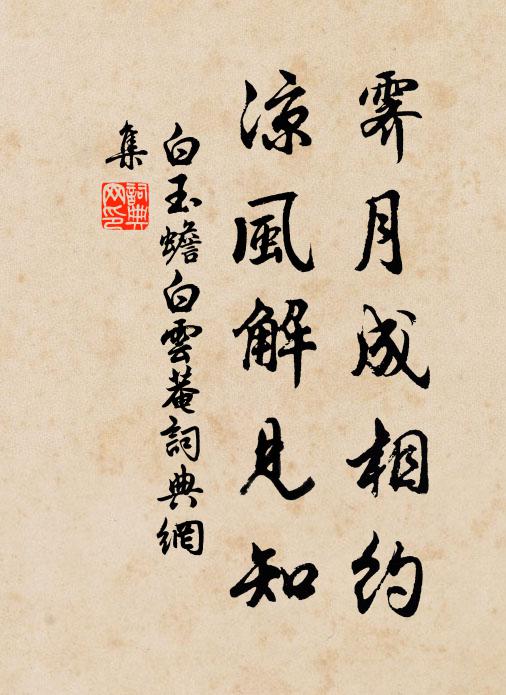 霽月成相約
涼風解見知
白玉蟾白雲菴詞典網
集
詞典網印